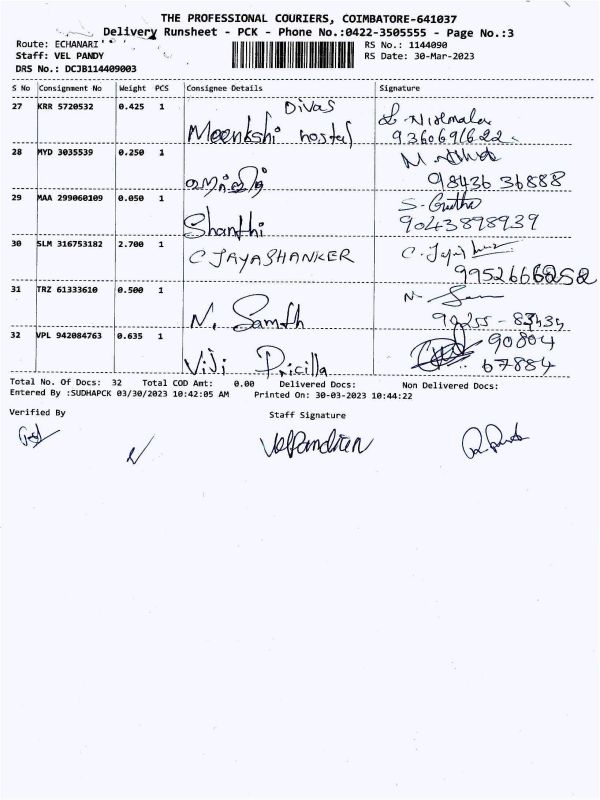 THE PROFESSIONAL COURIERS, COIMBATORE-641037
Delivery Runsheet - PCK - Phone No.:0422-3505555 - Page No.:3
Route: ECHANARI RS No.: 1144090
Staff: VEL PANDY RS Date: 30-Mar-2023
DRS No.: DCJB114409003
S No Consignment No Weight PCS Consignee Details Signature
27 KRR 5720532 0.425 1 Divas
Meenkshi hostel
9360691622
28 MYD 3035539 0.250 1
98436 36888
29 MAA 299060109 0.050 1 S. Geetha
Shanthi 9043898939
30 SLM 316753182 2.700 1 C JAYASHANKER
31 TRZ 61333610 0.500 1
32 VPL 942084763 0.635 1 90804
Viji Pricilla 67884
Total No. Of Docs: 32 Total COD Amt: 0.00 Delivered Docs: Non Delivered Docs:
Entered By :SUDHAPCK 03/30/2023 10:42:05 AM Printed On: 30-03-2023 10:44:22
Verified By Staff Signature
VelPandian